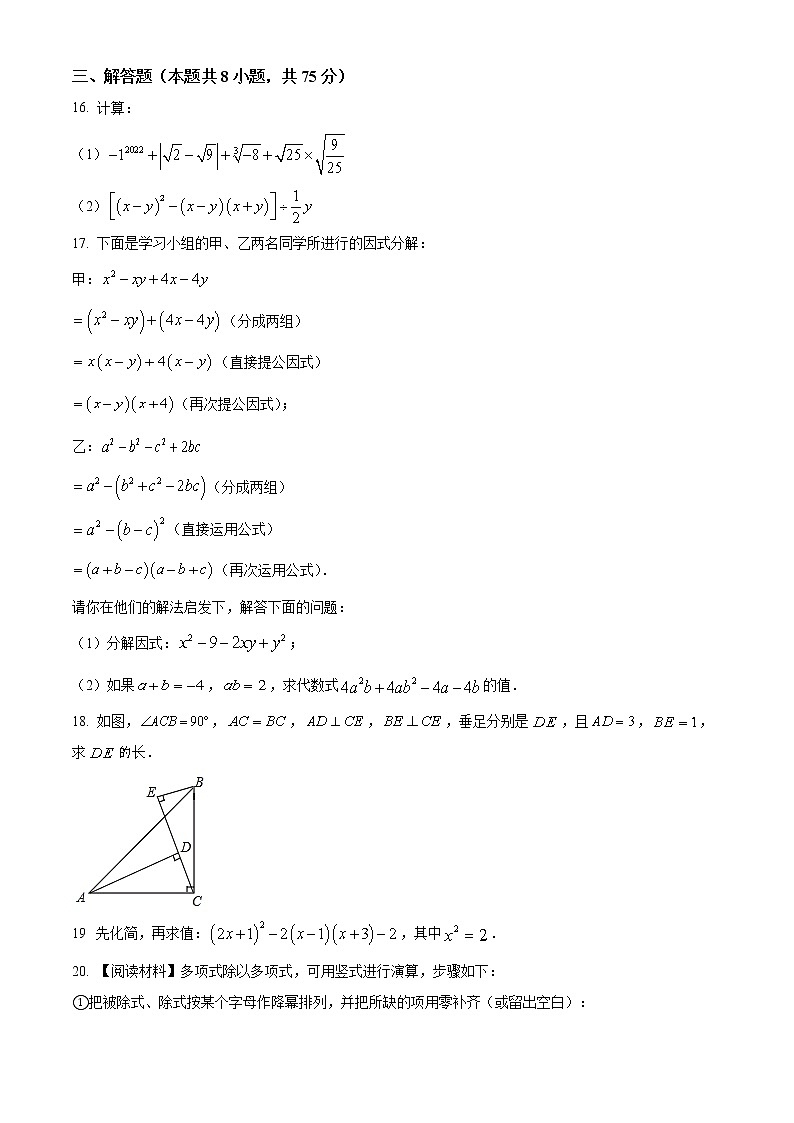 三、解答题（本题共 8 小题，共 75 分）
16. 计算：
（1）$-1^{2022}+\left|\sqrt{2}-\sqrt{9}\right|+\sqrt[3]{-8}+\sqrt{25}\times\sqrt{\frac{9}{25}}$
（2）$\left[(x-y)^2-(x-y)(x+y)\right]\div\frac{1}{2}y$
17. 下面是学习小组的甲、乙两名同学所进行的因式分解：
甲：$x^2-xy+4x-4y$
$=(x^2-xy)+(4x-4y)$（分成两组）
$=x(x-y)+4(x-y)$（直接提公因式）
$=(x-y)(x+4)$（再次提公因式）；
乙：$a^2-b^2-c^2+2bc$
$=a^2-(b^2+c^2-2bc)$（分成两组）
$=a^2-(b-c)^2$（直接运用公式）
$=(a+b-c)(a-b+c)$（再次运用公式）．
请你在他们的解法启发下，解答下面的问题：
（1）分解因式：$x^2-9-2xy+y^2$；
（2）如果$a+b=-4$，$ab=2$，求代数式$4a^2b+4ab^2-4a-4b$的值．
18. 如图，$\angle ACB=90°$，$AC=BC$，$AD\perp CE$，$BE\perp CE$，垂足分别是 $DE$，且$AD=3$，$BE=1$，
求 $DE$ 的长．
B
E
D
A
C
19 先化简，再求值：$(2x+1)^2-2(x-1)(x+3)-2$，其中$x^2=2$．
20. 【阅读材料】多项式除以多项式，可用竖式进行演算，步骤如下：
①把被除式、除式按某个字母作降幂排列，并把所缺的项用零补齐（或留出空白）：